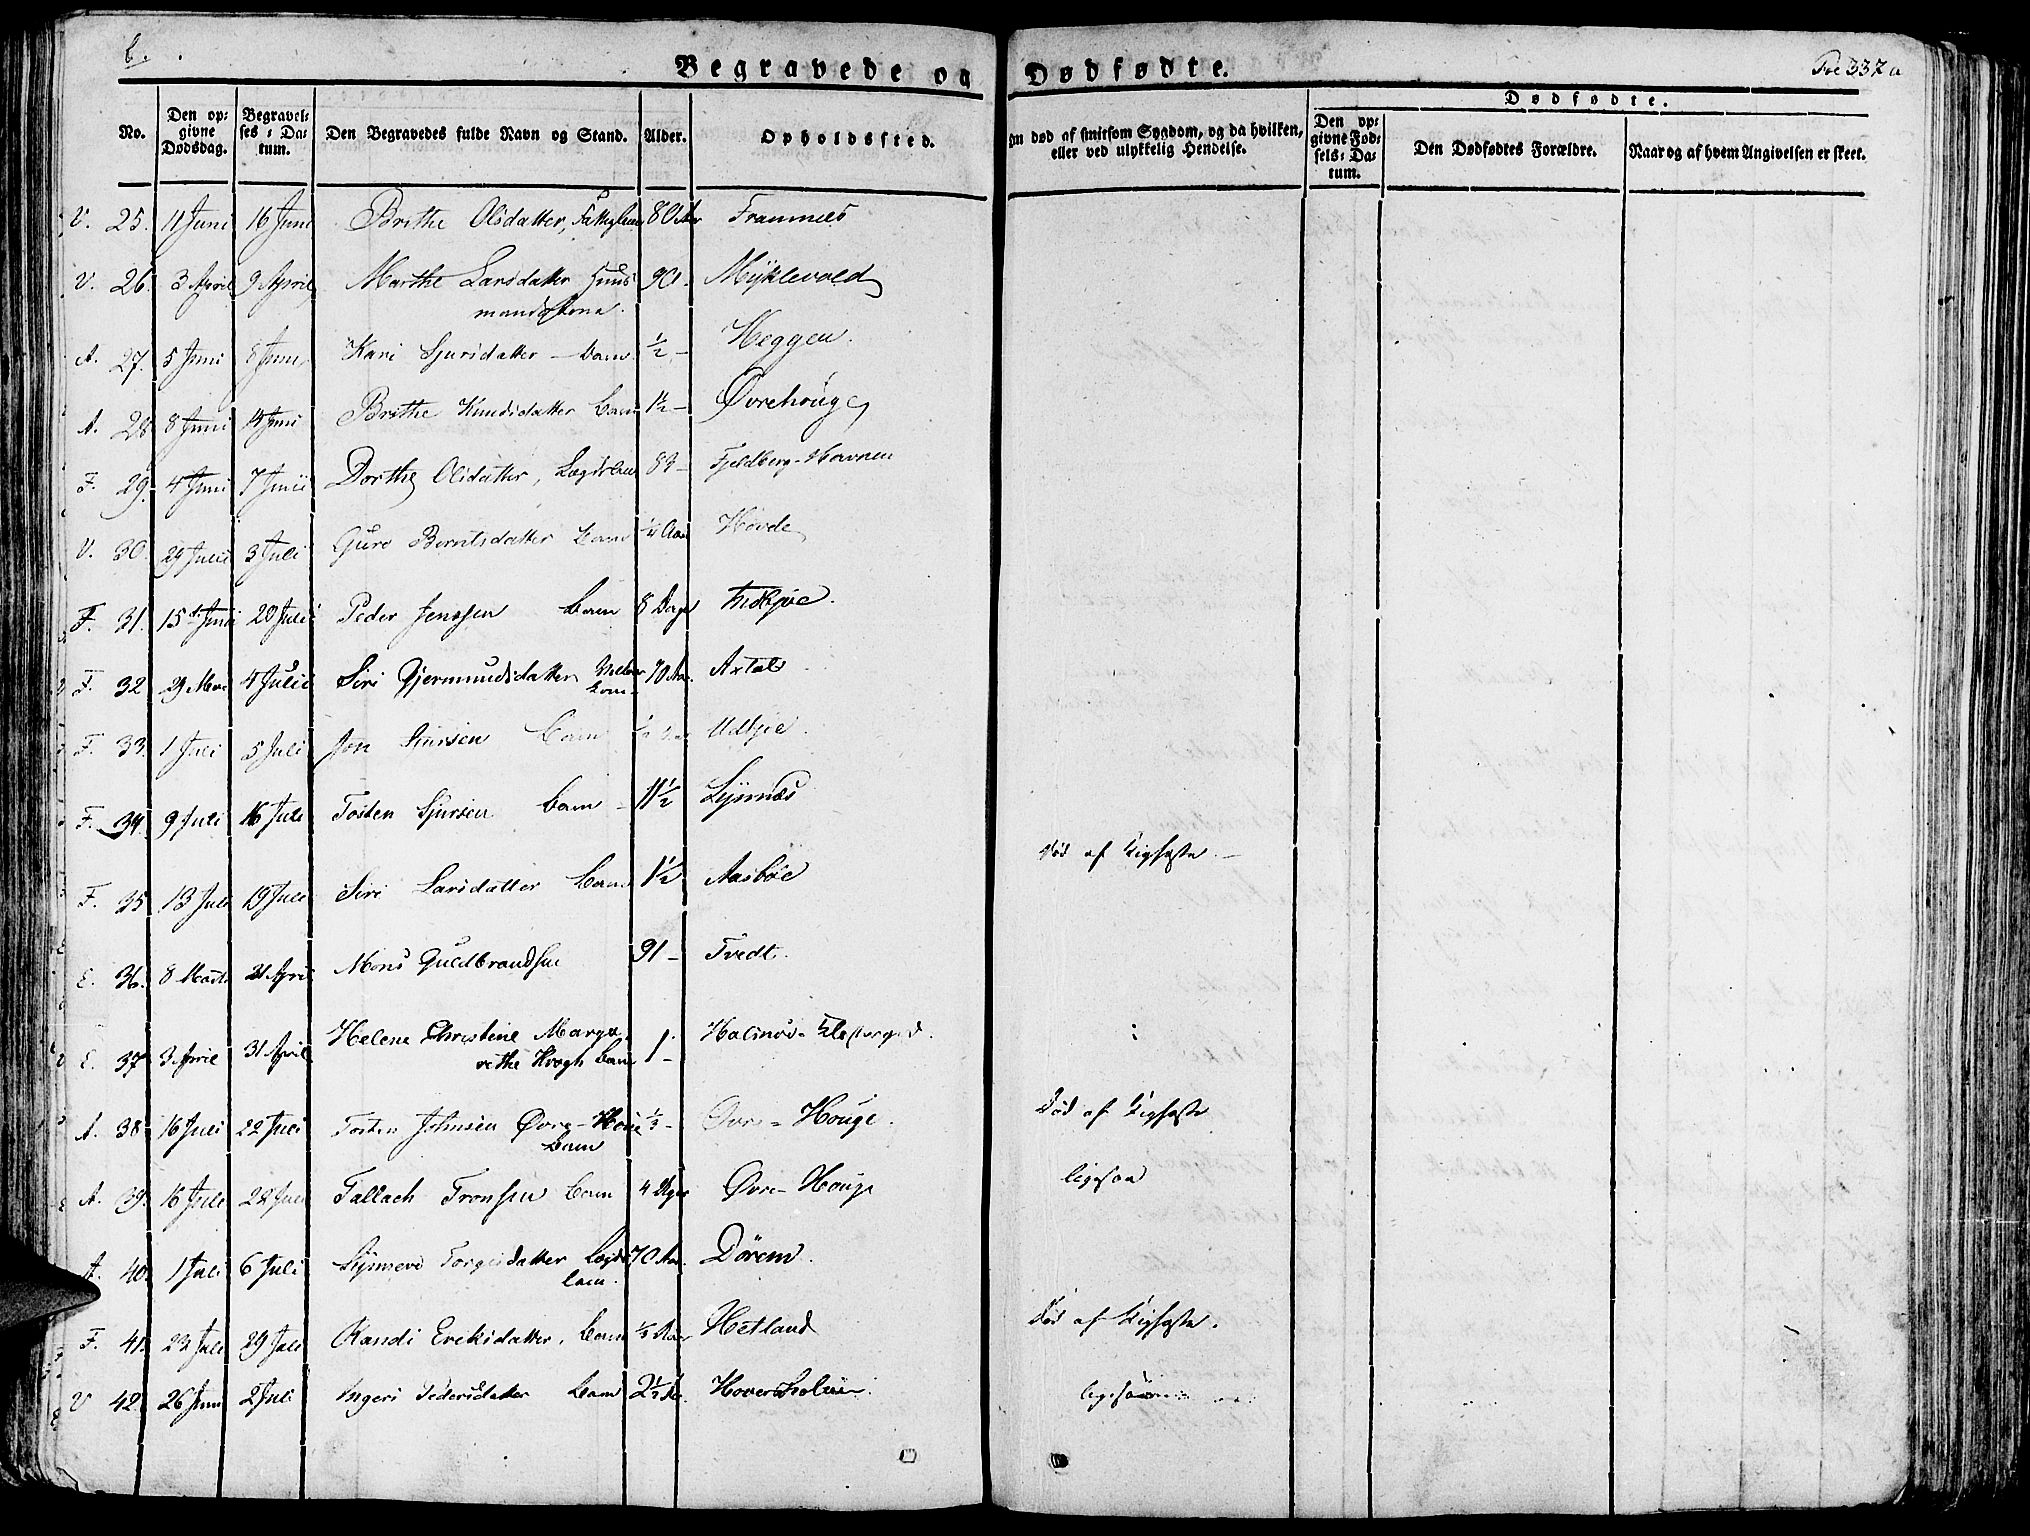 b.
Begravede og Dødfødte.
Fol 337 a
No.
Den op-
givne
Dødsdag.
Begravel-
ses-Da-
tum.
Den Begravedes fulde Navn og Stand.
Alder.
Opholdssted.
Om død af smitsom Sygdom, og da hvilken,
eller ved ulykkelig Hendelse.
Dødfødte.
Den op-
givne Fød-
sels-Da-
tum.
Den Dødfødtes Forældre.
Naar og af hvem Angivelsen er skeet.
V. 25. 11 Juni 16 Juni Brithe Olsdatter, 80 Aar Framnes
V. 26. 3 April 9 April Marthe Larsdatter Huus 90. Myklevold
mandskone.
A. 27. 5 Juni 8 Juni Kari Sjursdatter - Barn ½ - Heggen.
A. 28 8 Juni 14 Juni Brithe Knudsdatter barn 1½ - Øvrehouge
F. 29. 4 Juni 7 Juni Dorthe Olsdatter, Lægdslem 83 - Fjeldberg-Havnen
V. 30. 29 Juli 3 Juli Guro Berntsdatter barn ¼ Aar Hovde
F. 31. 15 Juni 20 Juli Peder Jenssen barn 8 Dage
F. 32 29 Mai 4 Juli Siri Gjermundsdatter 70 Aar Axtals
kone
F. 33. 1 Juli 5 Juli Jon Sjursen barn Udbjoe
F. 34. 9 Juli 16 Juli Tosten Sjursen barn - 11½ Lysnæs
F. 35 13 Juli 19 Juli Siri Larsdatter barn 1½ Aasbøe Død af Kighoste. -
E. 36. 8 Marts 21 April Mons Guldbrandsen 91 - Tvedt.
E. 37 3 April 31 April Helene Christine Marga
rethe Krogh barn 1 - Halsnøe-Klostergod.
A. 38 16 Juli 22 Juli Tosten Johnsen Øvre-Houge ⅓ - Øvre-Houge. Død af Kighoste
barn
A. 39. 16 Juli 22 Juli Tallach Tronsen barn 4 Uger Øvre-Houge ligesaa
A. 40. 1 Juli 6 Juli Synneve Torgesdatter Lægds 70 Aar. Dørem.
lem.
F. 41. 23 Juli 29 Juli Randi Ereksdatter, barn ⅓ Aar Hetland Død af Kighoste.
V 42. 26 Juni 2 Juli Ingeri Pedersdatter barn 2½ Aar. ligesaa